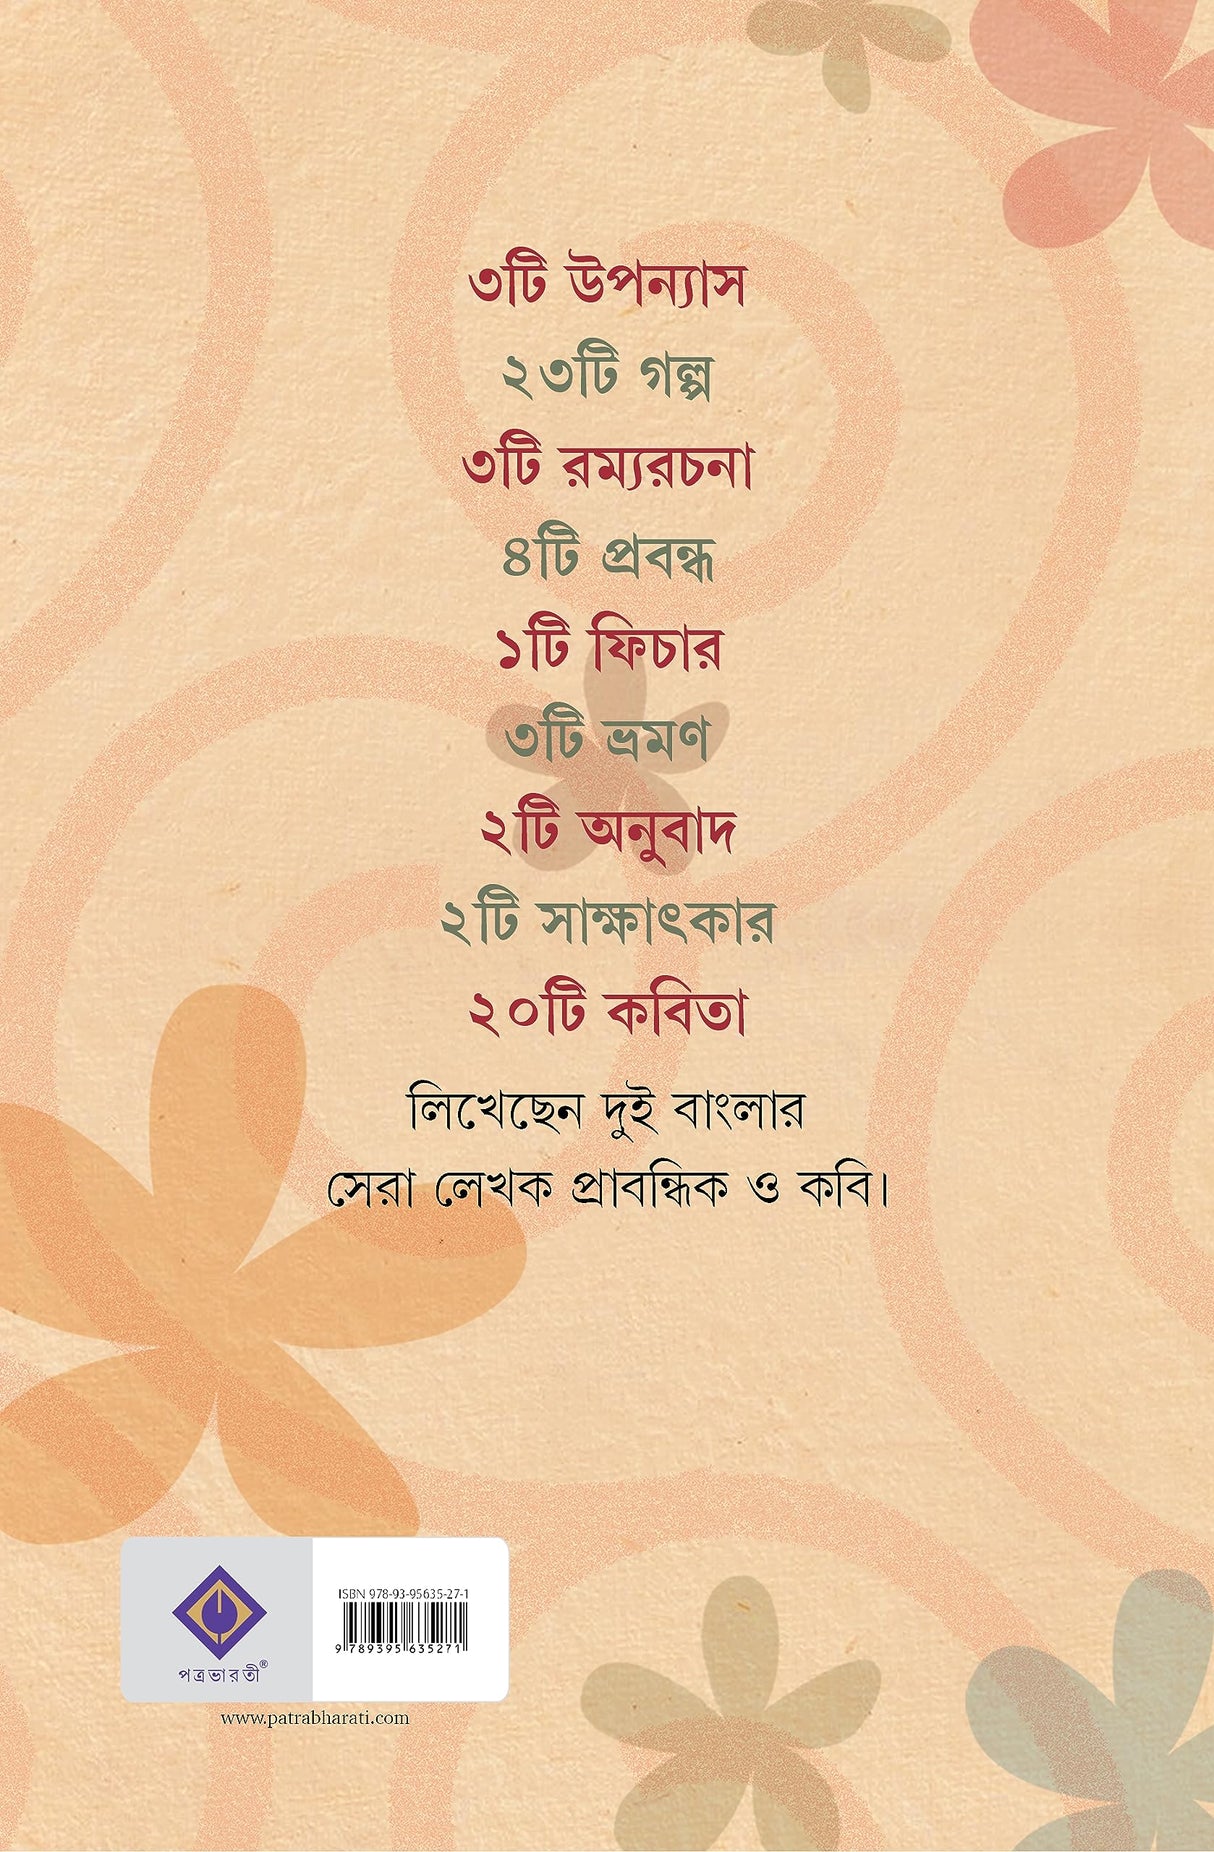 ৩টি উপন্যাস
২৩টি গল্প
৩টি রম্যরচনা
৪টি প্রবন্ধ
১টি ফিচার
৩টি ভ্রমণ
২টি অনুবাদ
২টি সাক্ষাৎকার
২০টি কবিতা
লিখেছেন দুই বাংলার
সেরা লেখক প্রাবন্ধিক ও কবি।
ISBN 978-93-95635-27-1
9 789395 635271
পত্রভারতী®
www.patrabharati.com